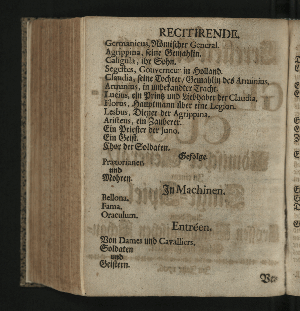 RECITIRENDE.
Germanicus, Römischer General.
Agrippina, seine Gemahlin.
Caligula, ihr Sohn.
Segestes, Gouverneur in Holland.
Claudia, seine Tochter, Gemahlin des Arminius.
Arminius, in unbekandter Tracht.
Lucius, ein Printz und Liebhaber der Claudia.
Florus, Hauptmann über eine Legion.
Lesbus, Diener der Agrippina.
Aristeus, ein Zauberer.
Ein Priester der Juno.
Ein Geist.
Chor der Soldaten.
Gefolge
Prætorianer
und
Mohren.
In Machinen.
Bellona.
Fama.
Oraculum.
Entréen.
Von Dames und Cavalliers.
Soldaten
und
Geistern.